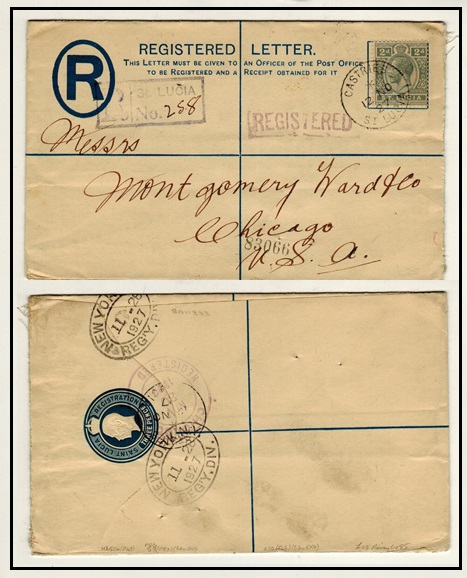 REGISTERED LETTER.
THIS LETTER MUST BE GIVEN TO AN OFFICER OF THE POST OFFICE
TO BE REGISTERED AND A RECEIPT OBTAINED FOR IT
R
ST LUCIA
No. 258
REGISTERED
2d 2d
CASTRIES
ST LUCIA
Messrs
Montgomery Ward & Co
Chicago
83066
U. S. A.
NEW YORK
11-28
1927
REG'Y. DIV.
REGISTERED
REGISTRATION
SAINT LUCIA
NEW YORK, N.Y.
11-28
1927
REG'Y. DIV.